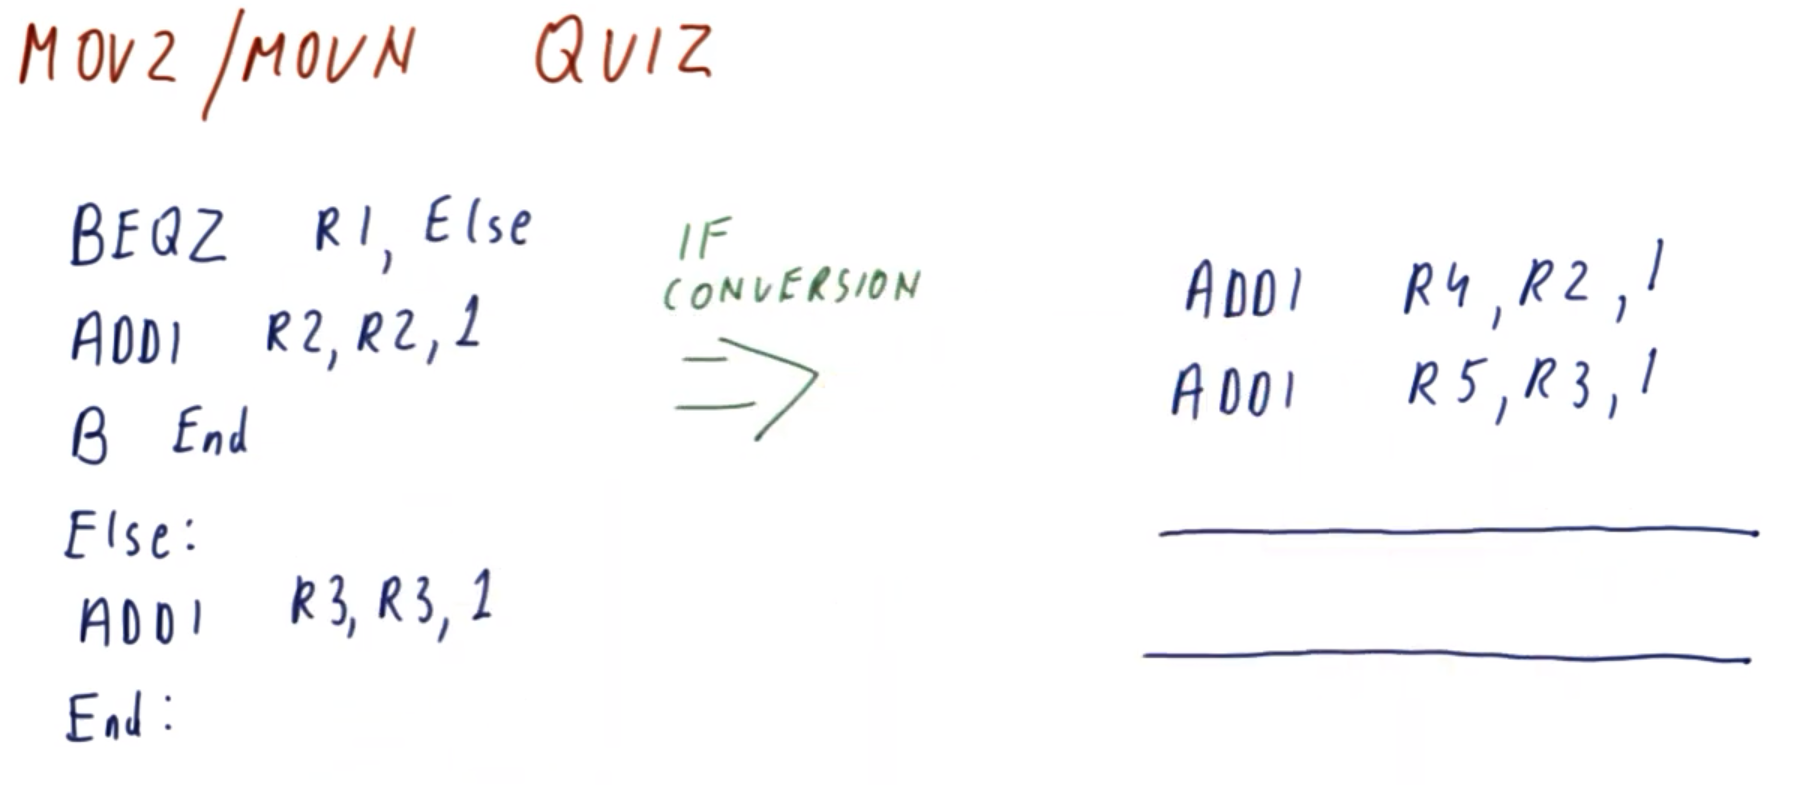 MOVZ/MOVN QUIZ
BEQZ R1, Else
ADDI R2, R2, 1
B End
Else:
ADDI R3, R3, 1
End:
IF
CONVERSION
ADDI R4, R2, 1
ADDI R5, R3, 1